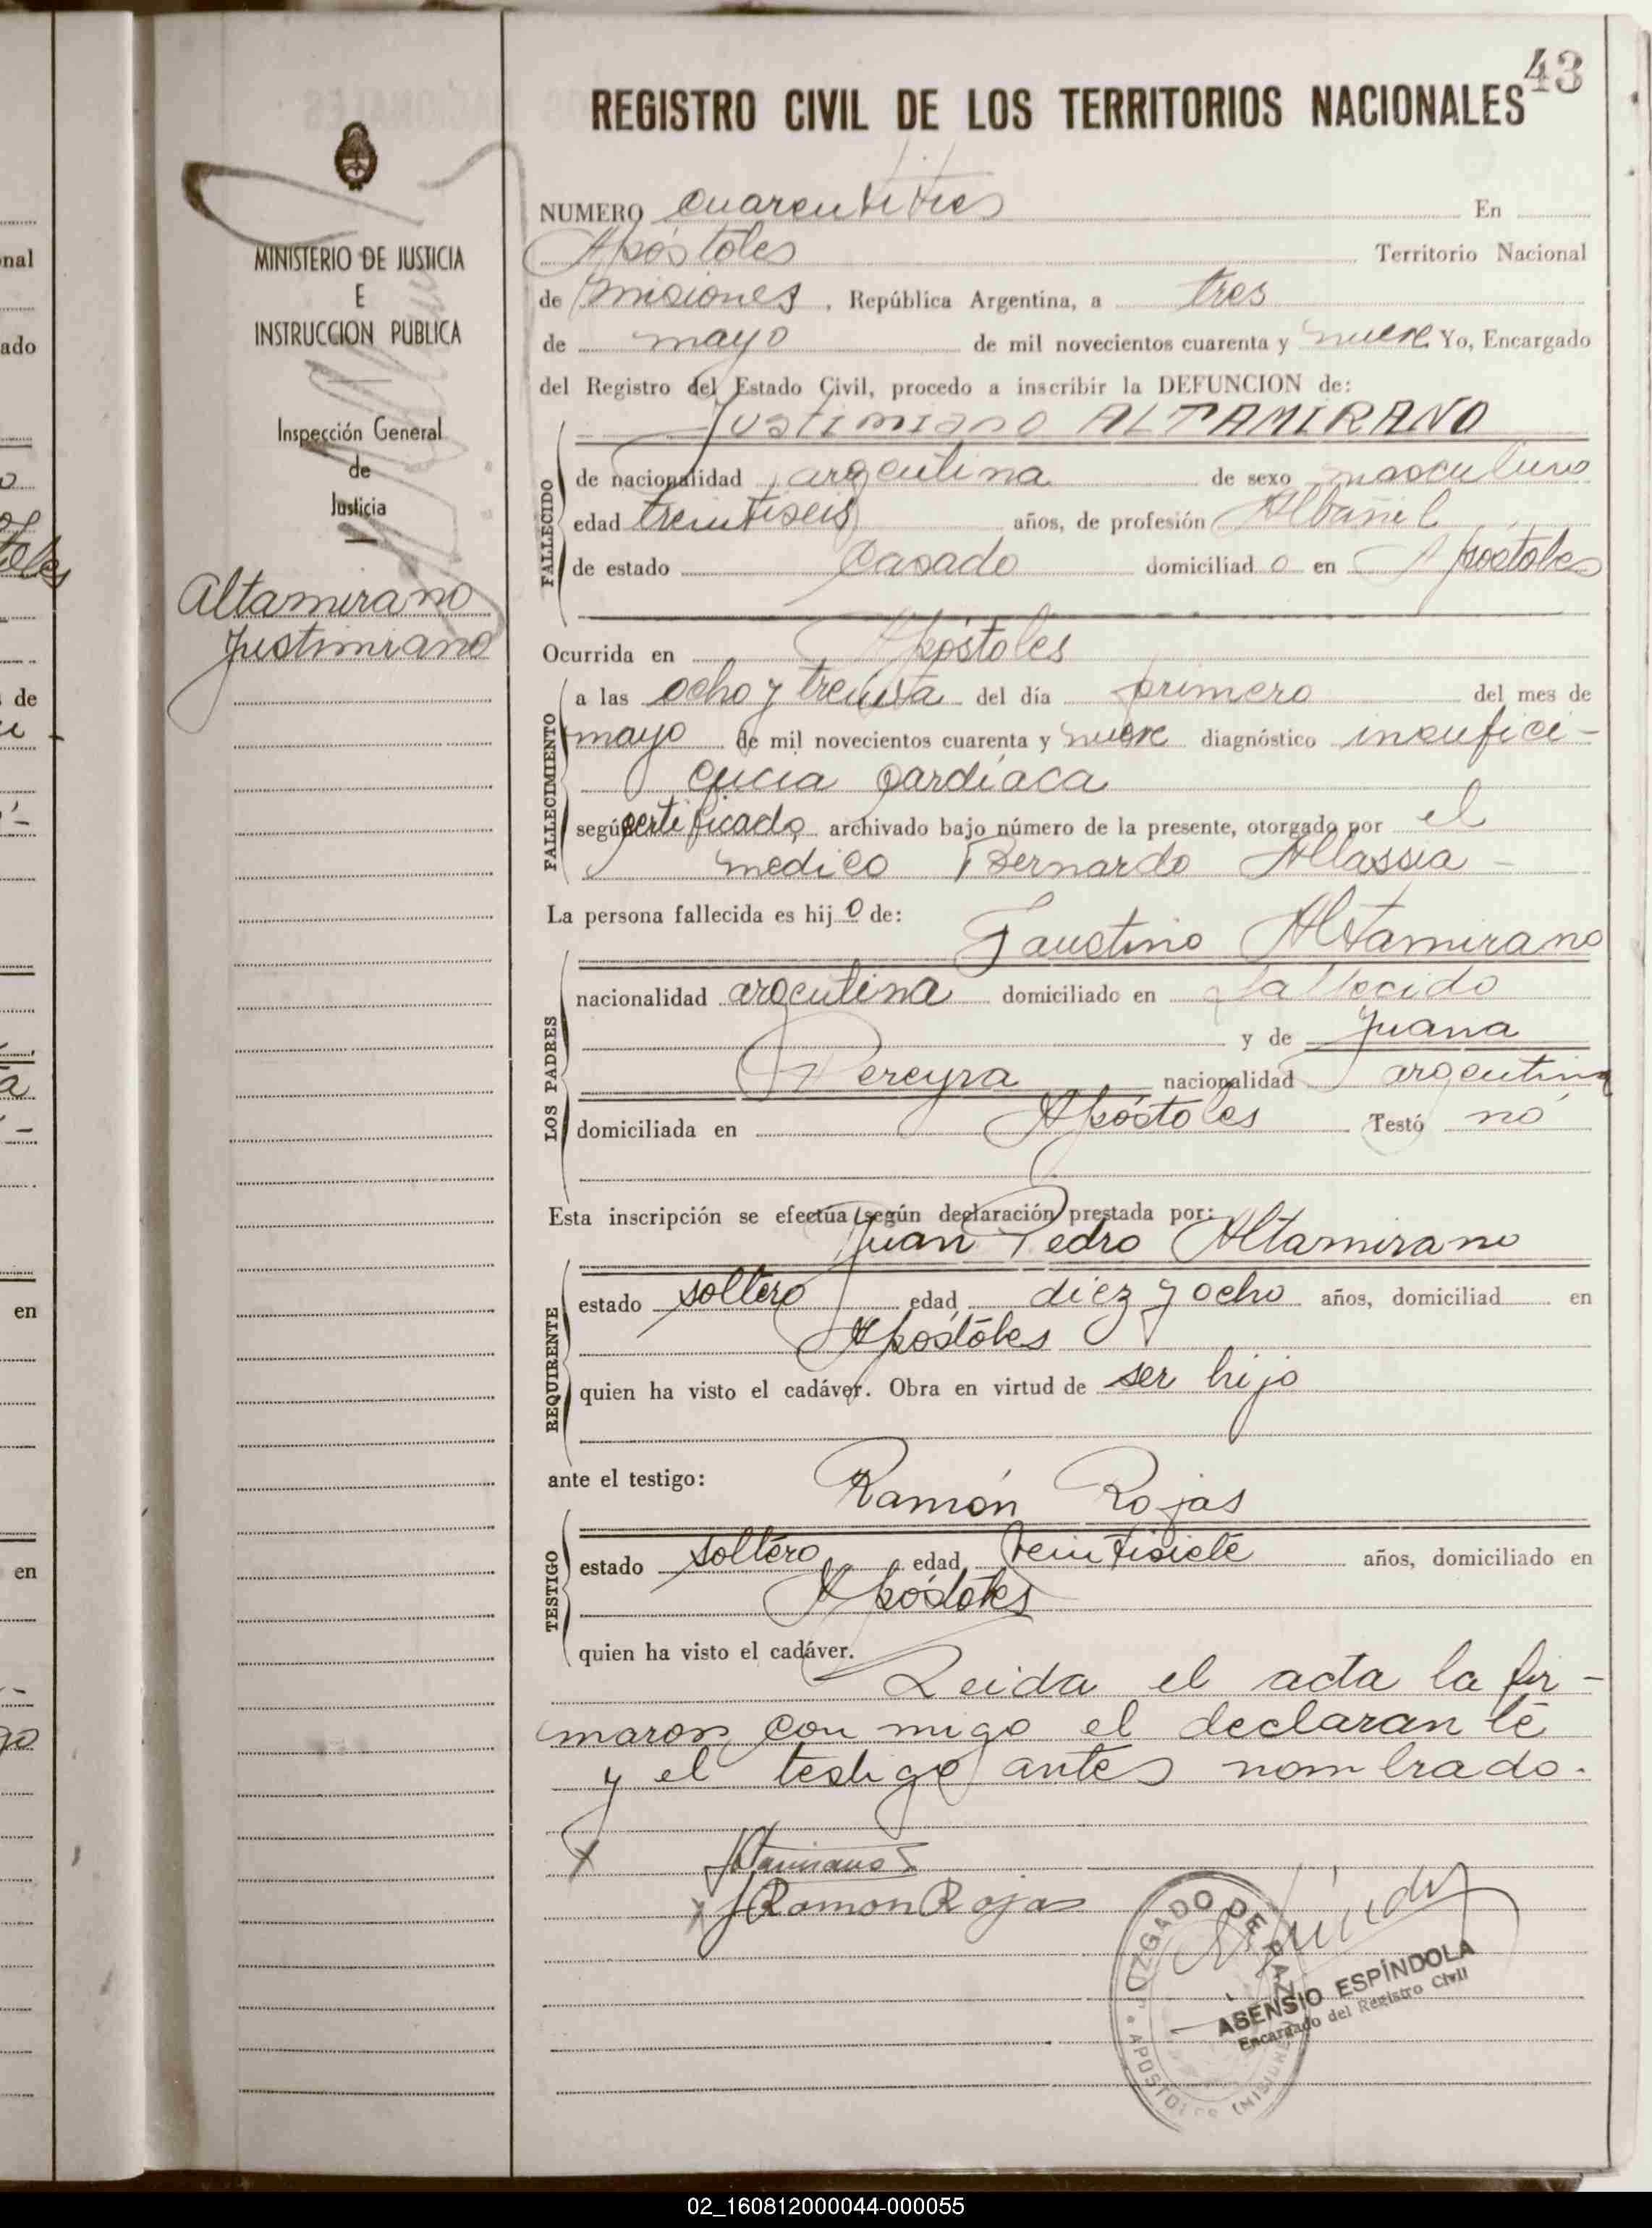 43
REGISTRO CIVIL DE LOS TERRITORIOS NACIONALES
MINISTERIO DE JUSTICIA
E
INSTRUCCION PUBLICA
Inspección General
de
Justicia
Altamirano
Justimiano
NUMERO cuarentitres En
Apóstoles Territorio Nacional
de Misiones, República Argentina, a tres
de mayo de mil novecientos cuarenta y nueve Yo, Encargado
del Registro del Estado Civil, procedo a inscribir la DEFUNCION de:
Justimiano ALTAMIRANO
FALLECIDO
de nacionalidad argentina de sexo masculino
edad treintiseis años, de profesión Albañil
de estado Casado domiciliad o en Apóstoles
Ocurrida en Apóstoles
FALLECIMIENTO
a las ocho y treinta del día primero del mes de
mayo de mil novecientos cuarenta y nueve diagnóstico insufici-
encia cardíaca
segú certificado archivado bajo número de la presente, otorgado por el
medico Bernardo Allassia -
La persona fallecida es hij o de:
Faustino Altamirano
LOS PADRES
nacionalidad argentina domiciliado en fallecido
y de Juana
Pereyra nacionalidad argentina
domiciliada en Apóstoles Testó nó
Esta inscripción se efectúa según declaración prestada por:
Juan Pedro Altamirano
REQUIRENTE
estado soltero edad diez y ocho años, domiciliad en
Apóstoles
quien ha visto el cadáver. Obra en virtud de ser hijo
ante el testigo:
Ramón Rojas
TESTIGO
estado soltero edad veintisiete años, domiciliado en
Apóstoles
quien ha visto el cadáver.
Leida el acta la fir-
maron con migo el declarante
y el testigo antes nombrado.
x
x Ramon Rojas
JUZGADO DE PAZ
APOSTOLES (MISIONES)
ASENSIO ESPÍNDOLA
Encargado del Registro Civil
02_160812000044-000055